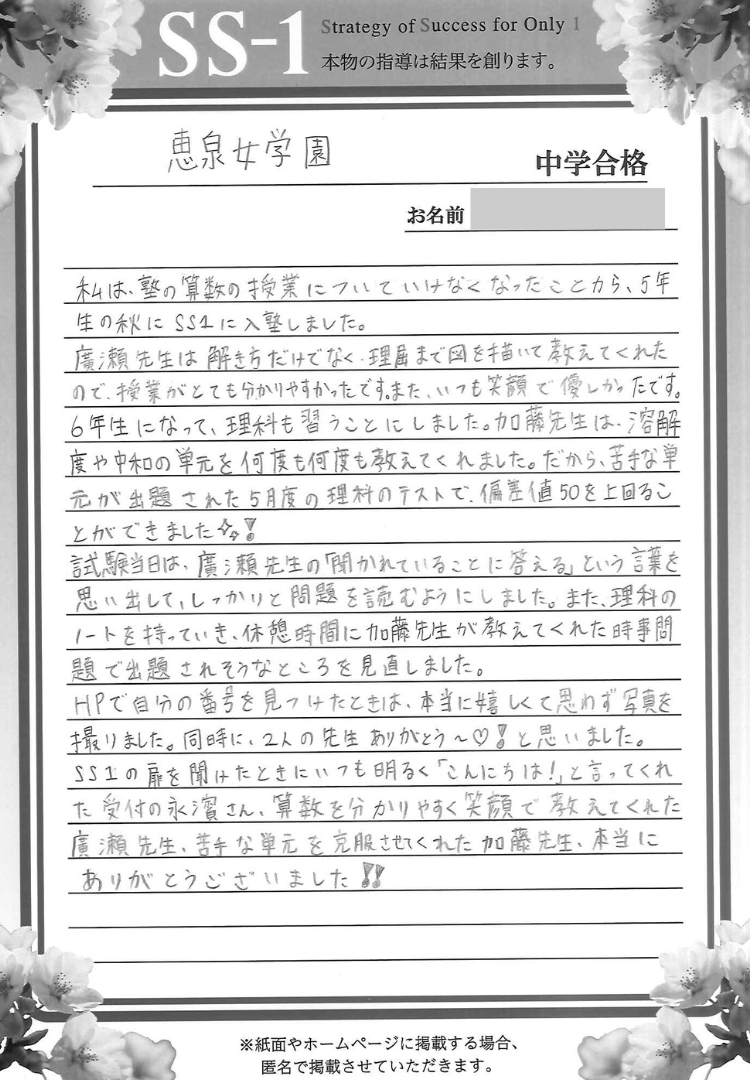 SS-1
Strategy of Success for Only 1
本物の指導は結果を創ります。
恵泉女学園
中学合格
お名前
私は、塾の算数の授業についていけなくなったことから、5年
生の秋にSS1に入塾しました。
廣瀬先生は解き方だけでなく、理屈まで図を描いて教えてくれた
ので、授業がとても分かりやすかったです。また、いつも笑顔で優しかったです。
6年生になって、理科も習うことにしました。加藤先生は、溶解
度や中和の単元を何度も何度も教えてくれました。だから、苦手な単
元が出題された5月度の理科のテストで、偏差値50を上回るこ
とができました✨!
試験当日は、廣瀬先生の「聞かれていることに答える」という言葉を
思い出して、しっかりと問題を読むようにしました。また、理科の
ノートを持っていき、休憩時間に加藤先生が教えてくれた時事問
題で出題されそうなところを見直しました。
HPで自分の番号を見つけたときは、本当に嬉しくて思わず写真を
撮りました。同時に、2人の先生ありがとう〜♡!と思いました。
SS1の扉を開けたときにいつも明るく「こんにちは!」と言ってくれ
た受付の永濱さん、算数を分かりやすく笑顔で教えてくれた
廣瀬先生、苦手な単元を克服させてくれた加藤先生、本当に
ありがとうございました!!
※紙面やホームページに掲載する場合、
匿名で掲載させていただきます。